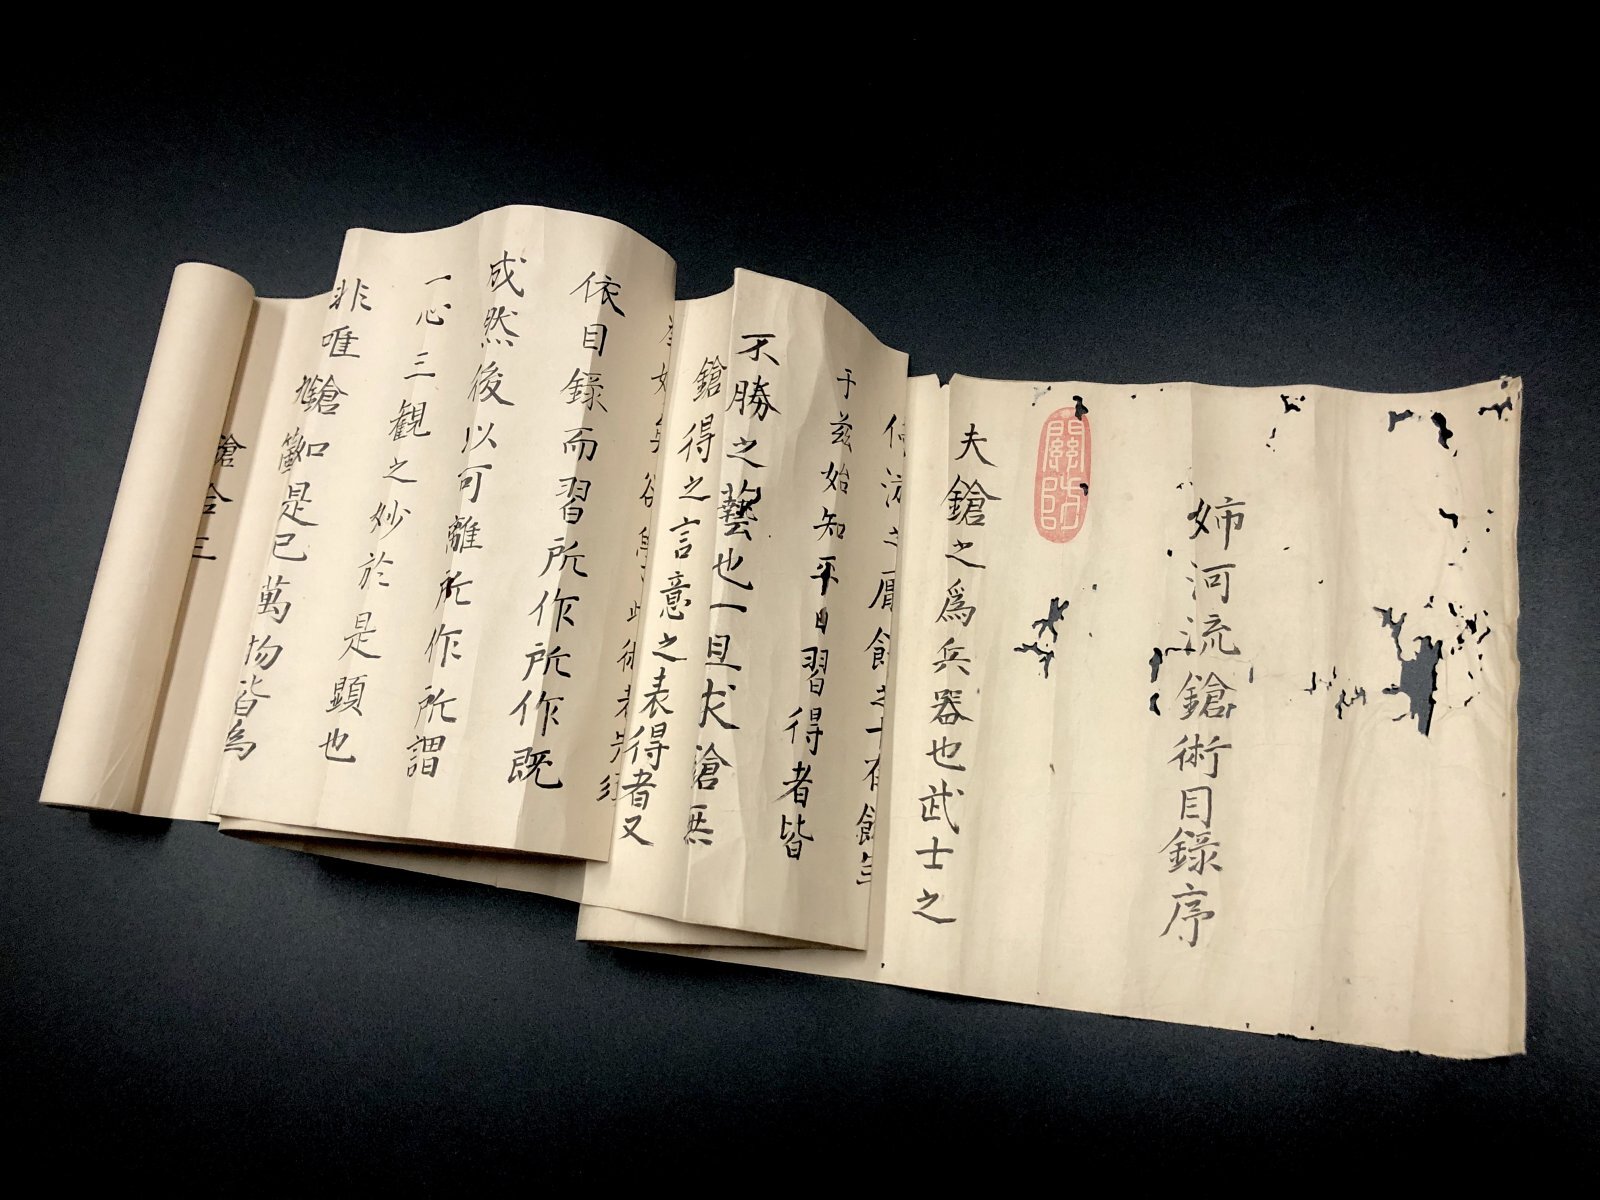 姉河流鎗術目錄序
關防
夫鎗之爲兵器也武士之
之 食之十有餘年
于茲始知平日習得者皆
不勝之藝也一旦犬鎗無
鎗得之言意之表得者又
此術者先須
依目錄而習所作所作既
成然後以可離所作所謂
一心三觀之妙於是顕也
非唯鎗如是已萬物皆為
鎗合三